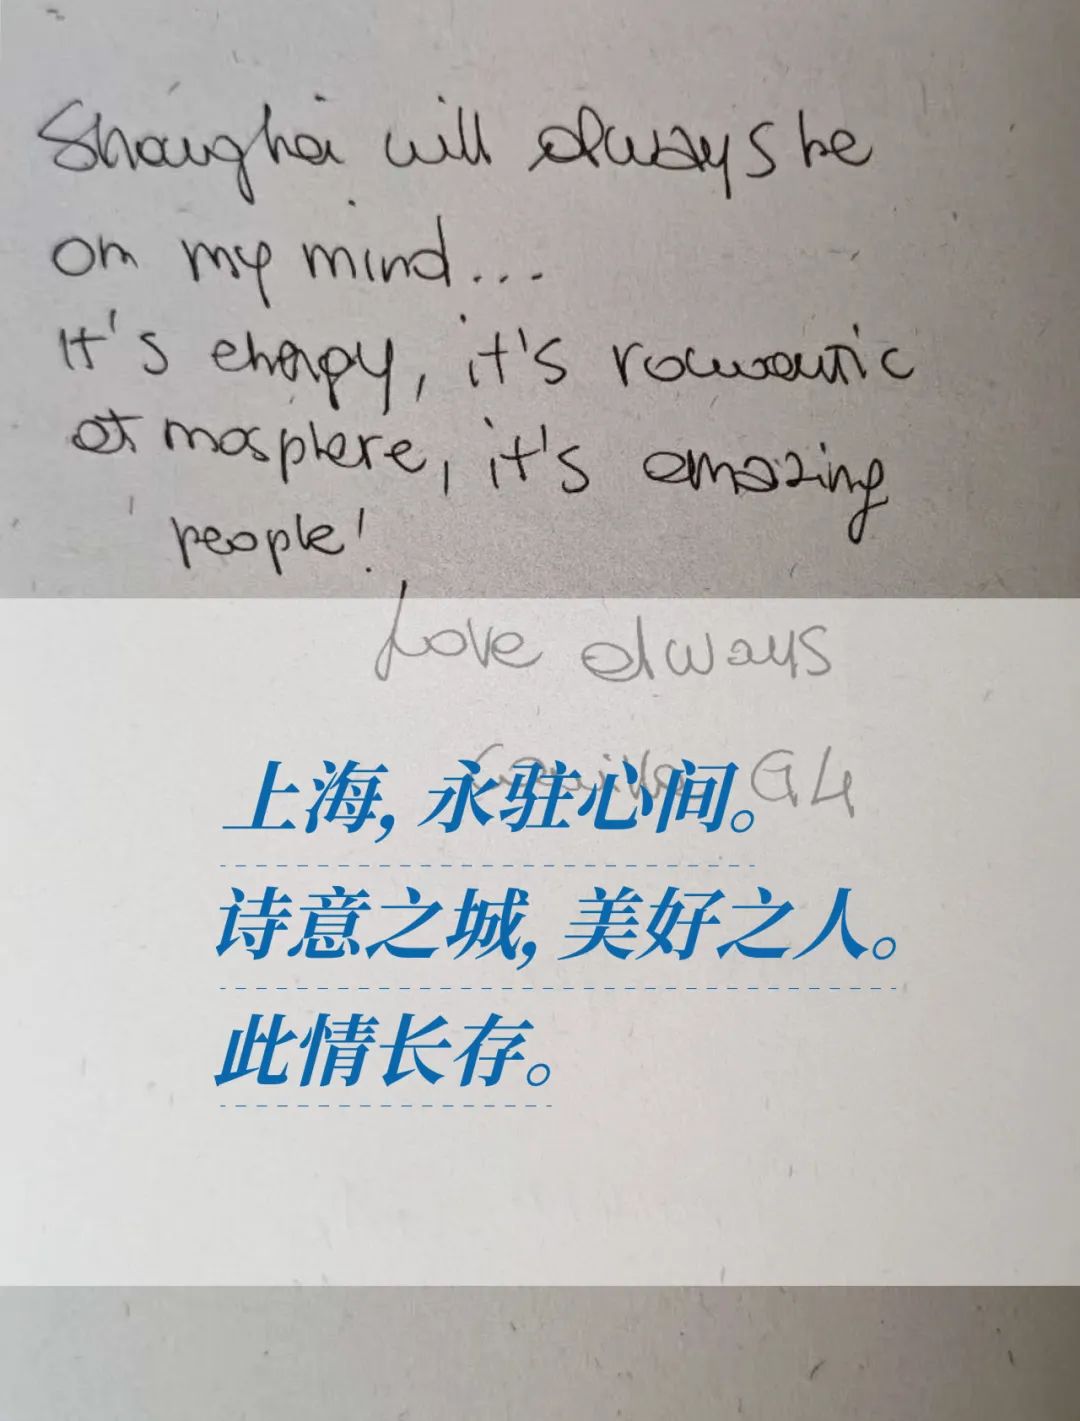 Shanghai will always be
on my mind...
It's energy, it's romantic
atmosphere, it's amazing
people!
Love always
G4
上海, 永驻心间。
诗意之城, 美好之人。
此情长存。